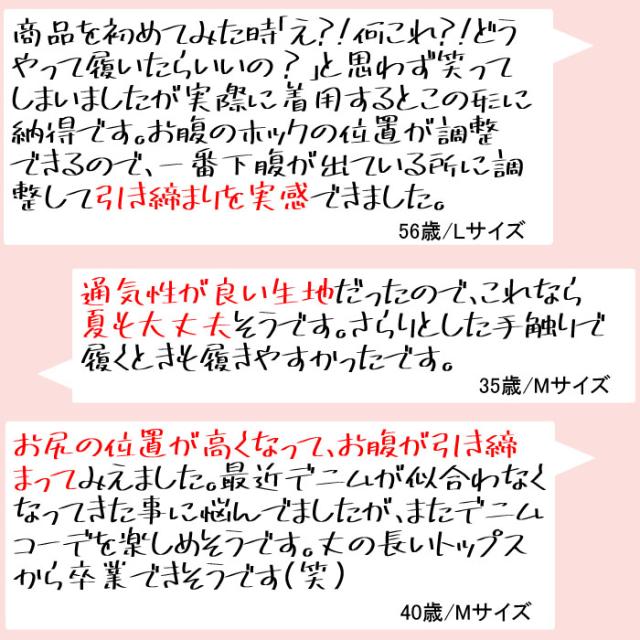 商品を初めてみた時「え?!何これ?!どう
やって履いたらいいの？」と思わず笑って
しまいましたが実際に着用するとこの形に
納得です。お腹のホックの位置が調整
できるので、一番下腹が出ている所に調
整して引き締まりを実感できました。
56歳/Lサイズ
通気性が良い生地だったので、これなら
夏も大丈夫そうです。さらりとした手触りで
履くときも履きやすかったです。
35歳/Mサイズ
お尻の位置が高くなって、お腹が引き締
まってみえました。最近デニムが似合わなく
なってきた事に悩んでましたが、またデニム
コーデを楽しめそうです。丈の長いトップス
から卒業できそうです(笑)
40歳/Mサイズ